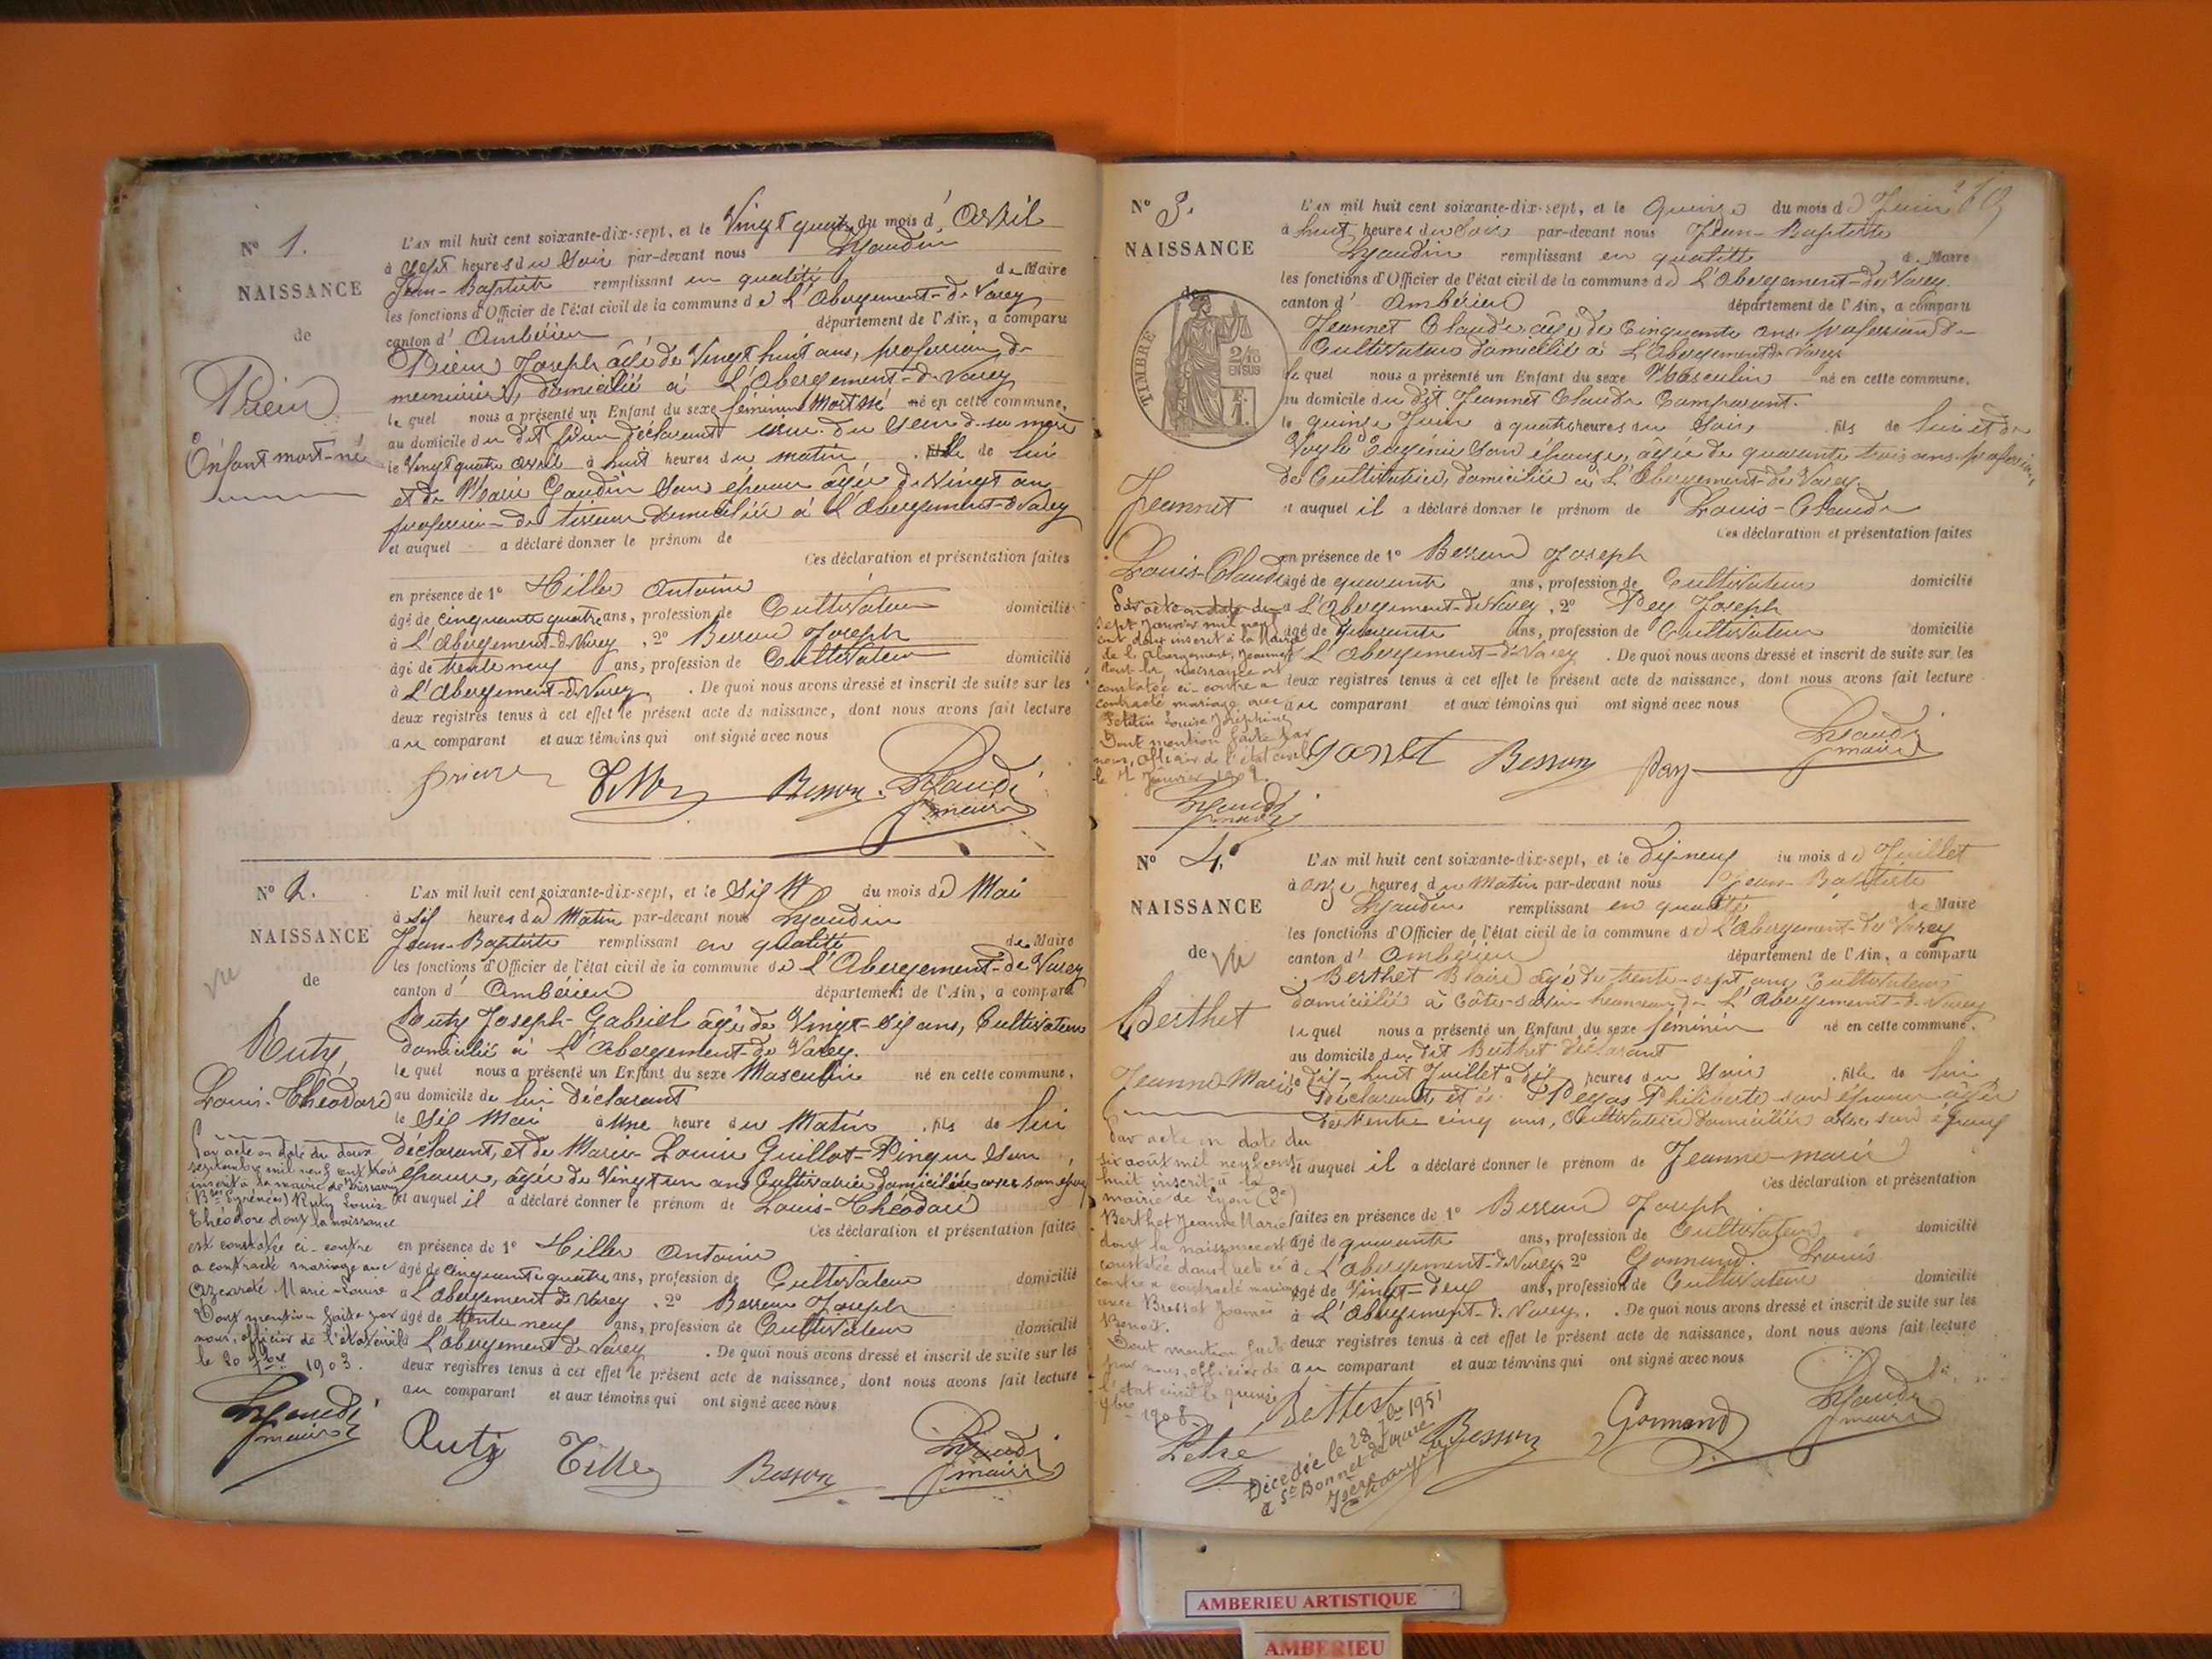 N° 1.
NAISSANCE
de
Enfant mort-né
L'AN mil huit cent soixante-dix-sept, et le Vingt quatre du mois d' Avril
à Sept heures du Soir par-devant nous
Jean-Baptiste remplissant en qualité de Maire
les fonctions d'Officier de l'état civil de la commune de L'Abergement-de Varey
canton d' Ambérieu département de l'Ain, a comparu
Joseph âgé de Vingt huit ans, profession de
menuisier, domicilié à L'Abergement-de Varey
le quel nous a présenté un Enfant du sexe féminin Mort né né en cette commune,
au domicile du dit déclarant du Sein de sa mère
le Vingt quatre avril à huit heures du matin fille de lui
et de Marie Gaudin Son épouse âgée de Vingt ans
profession de domiciliée à L'Abergement-de Varey
et auquel a déclaré donner le prénom de
Ces déclaration et présentation faites
en présence de 1° Antoine
âgé de cinquante quatre ans, profession de Cultivateur domicilié
à L'Abergement-de Varey, 2° Joseph
âgé de trente neuf ans, profession de Cultivateur domicilié
à L'Abergement-de Varey. De quoi nous avons dressé et inscrit de suite sur les
deux registres tenus à cet effet le présent acte de naissance, dont nous avons fait lecture
au comparant et aux témoins qui ont signé avec nous
Besson
maire
N° 2.
NAISSANCE
vu
de
Ruty
Louis-Théodore
L'AN mil huit cent soixante-dix-sept, et le Six du mois de Mai
à Six heures du Matin par-devant nous
Jean-Baptiste remplissant en qualité de Maire
les fonctions d'Officier de l'état civil de la commune de L'Abergement-de Varey
canton d' Ambérieu département de l'Ain, a comparu
Ruty Joseph-Gabriel âgé de Vingt-six ans, Cultivateur
domicilié à L'Abergement-de Varey.
le quel nous a présenté un Enfant du sexe Masculin né en cette commune,
au domicile de lui déclarant
le Six Mai à Une heure du Matin, fils de lui
déclarant, et de Marie-Louise Guillot-Pingue Son
épouse, âgée de Vingt un ans Cultivatrice domiciliée avec son époux
et auquel il a déclaré donner le prénom de Louis-Théodore
Ces déclaration et présentation faites
en présence de 1° Antoine
âgé de cinquante quatre ans, profession de Cultivateur domicilié
à L'Abergement de Varey, 2° Joseph
âgé de trente neuf ans, profession de Cultivateur domicilié
à L'Abergement de Varey. De quoi nous avons dressé et inscrit de suite sur les
deux registres tenus à cet effet le présent acte de naissance, dont nous avons fait lecture
au comparant et aux témoins qui ont signé avec nous
Par acte en date du deux
septembre mil neuf cent trois
inscrit à la mairie de
(Bses Pyrénées) Ruty Louis
Théodore dont la naissance
est constatée ci-contre
a contracté mariage avec
Marie Louise
Dont mention faite par
nous, officier de l'état civil
le 20 7bre 1903.
maire
Ruty Besson
maire
N° 3.
NAISSANCE
de
TIMBRE
2/10 EN SUS
Jeannet
Louis-Claude
L'AN mil huit cent soixante-dix-sept, et le Quinze du mois de Juin
à huit heures du Soir par-devant nous Jean-Baptiste
remplissant en qualité de Maire
les fonctions d'Officier de l'état civil de la commune de L'Abergement-de Varey.
canton d' Ambérieu département de l'Ain, a comparu
Jeannet Claude âgé de Cinquante ans profession de
Cultivateur domicilié à L'Abergement de Varey
le quel nous a présenté un Enfant du sexe Masculin né en cette commune,
au domicile du dit Jeannet Claude Comparant.
le quinze Juin à quatre heures du Soir, fils de lui et de
Eugénie Son épouse, âgée de quarante trois ans profession
de Cultivatrice, domiciliée à L'Abergement-de Varey.
et auquel il a déclaré donner le prénom de Louis-Claude
Ces déclaration et présentation faites
en présence de 1° Joseph
âgé de quarante ans, profession de Cultivateur domicilié
à L'Abergement-de Varey, 2° Pey Joseph
âgé de quarante ans, profession de Cultivateur domicilié
à L'Abergement-de Varey. De quoi nous avons dressé et inscrit de suite sur les
deux registres tenus à cet effet le présent acte de naissance, dont nous avons fait lecture
au comparant et aux témoins qui ont signé avec nous
Par acte en date du
sept Janvier mil neuf
cent deux inscrit à la Mairie
de l'Abergement, Jeannet
dont la naissance est
constatée ci-contre a
contracté mariage avec
Louise Joséphine
Dont mention faite par
nous, officier de l'état civil
le Janvier 1902.
maire
Besson Pey
maire
N° 4.
NAISSANCE
de vu
Berthet
Jeanne Marie
L'AN mil huit cent soixante-dix-sept, et le Dix-neuf du mois de Juillet
à onze heures du Matin par-devant nous Jean-Baptiste
remplissant en qualité de Maire
les fonctions d'Officier de l'état civil de la commune de L'Abergement-de Varey
canton d' Ambérieu département de l'Ain, a comparu
Berthet âgé de trente-sept ans Cultivateur
domicilié à hameau de L'Abergement-de Varey
le quel nous a présenté un Enfant du sexe féminin né en cette commune.
au domicile du dit Berthet déclarant
le dix-huit Juillet à dix heures du Soir, fille de lui
déclarant, et de Philiberte son épouse âgée
de trente cinq ans, Cultivatrice domiciliée avec son époux
et auquel il a déclaré donner le prénom de Jeanne-Marie
Ces déclaration et présentation
faites en présence de 1° Joseph
âgé de quarante ans, profession de Cultivateur domicilié
à L'Abergement-de Varey, 2° Gonnand Louis
âgé de Vingt-deux ans, profession de Cultivateur domicilié
à L'Abergement-de Varey. De quoi nous avons dressé et inscrit de suite sur les
deux registres tenus à cet effet le présent acte de naissance, dont nous avons fait lecture
au comparant et aux témoins qui ont signé avec nous
Par acte en date du
six août mil neuf cent
huit inscrit à la
mairie de Lyon (2e)
Berthet Jeanne Marie
dont la naissance est
constatée dans l'acte ci
contre a contracté mariage
avec
Benoit.
Dont mention faite
par nous, officier de
l'état civil le quinze
1908.
Décédée le 28 1951
à St Bonnet de
Isère
Besson Gonnand
maire
AMBERIEU ARTISTIQUE
AMBERIEU